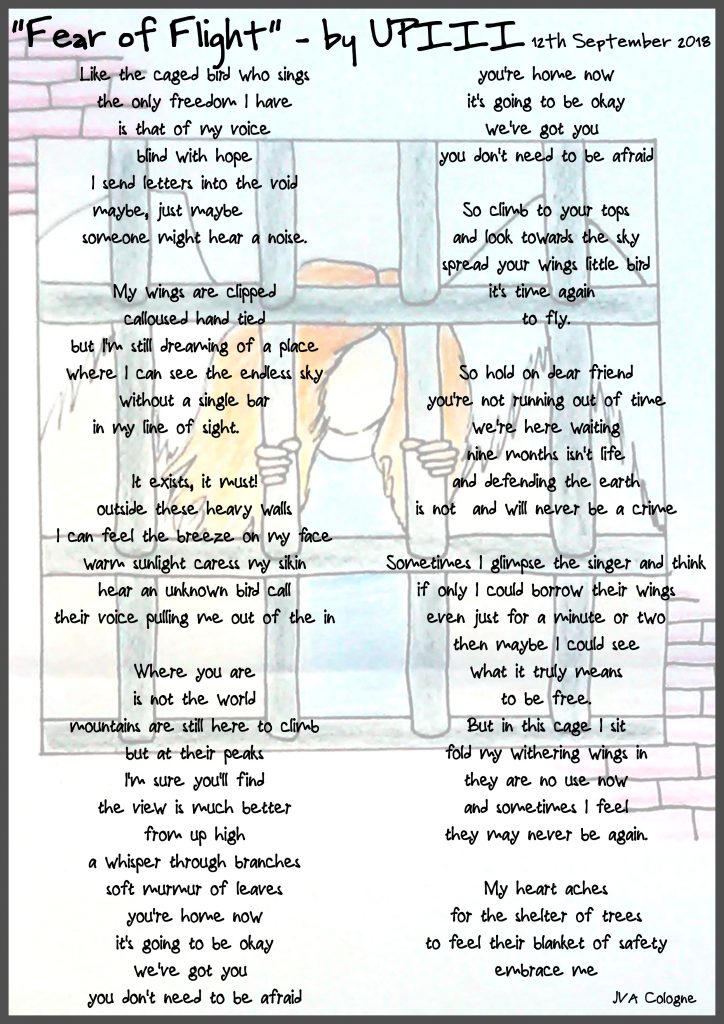 "Fear of Flight" - by UPIII 12th September 2018
Like the caged bird who sings
the only freedom I have
is that of my voice
blind with hope
I send letters into the void
maybe, just maybe
someone might hear a noise.
My wings are clipped
calloused hand tied
but I'm still dreaming of a place
where I can see the endless sky
without a single bar
in my line of sight.
It exists, it must!
outside these heavy walls
I can feel the breeze on my face
warm sunlight caress my sikin
hear an unknown bird call
their voice pulling me out of the in
Where you are
is not the world
mountains are still here to climb
but at their peaks
I'm sure you'll find
the view is much better
from up high
a whisper through branches
soft murmur of leaves
you're home now
it's going to be okay
we've got you
you don't need to be afraid
you're home now
it's going to be okay
we've got you
you don't need to be afraid
So climb to your tops
and look towards the sky
spread your wings little bird
it's time again
to fly.
So hold on dear friend
you're not running out of time
we're here waiting
nine months isn't life
and defending the earth
is not and will never be a crime
Sometimes I glimpse the singer and think
if only I could borrow their wings
even just for a minute or two
then maybe I could see
what it truly means
to be free.
But in this cage I sit
fold my withering wings in
they are no use now
and sometimes I feel
they may never be again.
My heart aches
for the shelter of trees
to feel their blanket of safety
embrace me
JVA Cologne